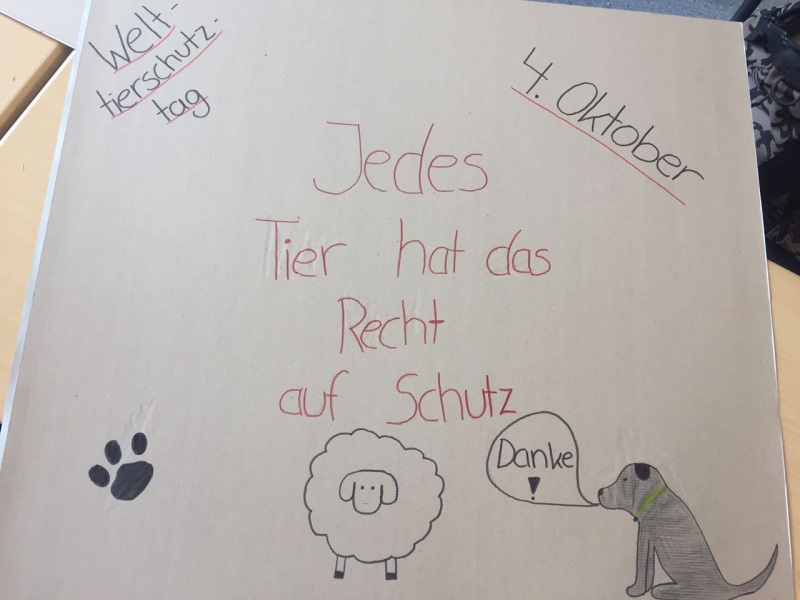 Welt-
tierschutz-
tag
4. Oktober
Jedes
Tier hat das
Recht
auf Schutz
Danke
!